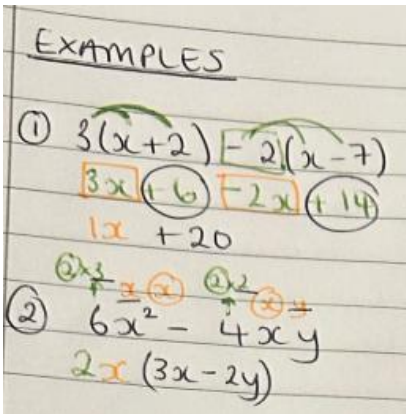 EXAMPLES
① 3(x+2) - 2(x-7)
3x + 6 - 2x + 14
1x + 20
②×3 x ⓧ ②×2 ⓧ y
② 6x² - 4xy
2x (3x-2y)